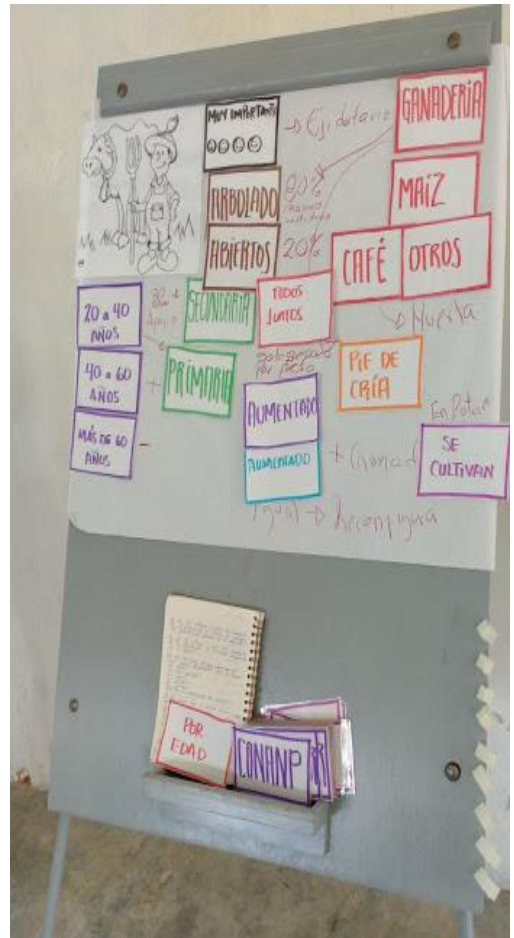 MUY IMPORTANTE
→ Ejidatario
GANADERÍA
ARBOLADO
80%
MAÍZ
ABIERTOS
20%
CAFÉ
OTROS
→ Huerta
20 a 40
AÑOS
SECUNDARIA
TODOS
JUNTOS
40 a 60
AÑOS
+
PRIMARIA
por peso
PIE DE
CRÍA
MÁS DE 60
AÑOS
-
AUMENTADO
AUMENTADO
+ Ganad
SE
CULTIVAN
Igual →
POR
EDAD
CONANP